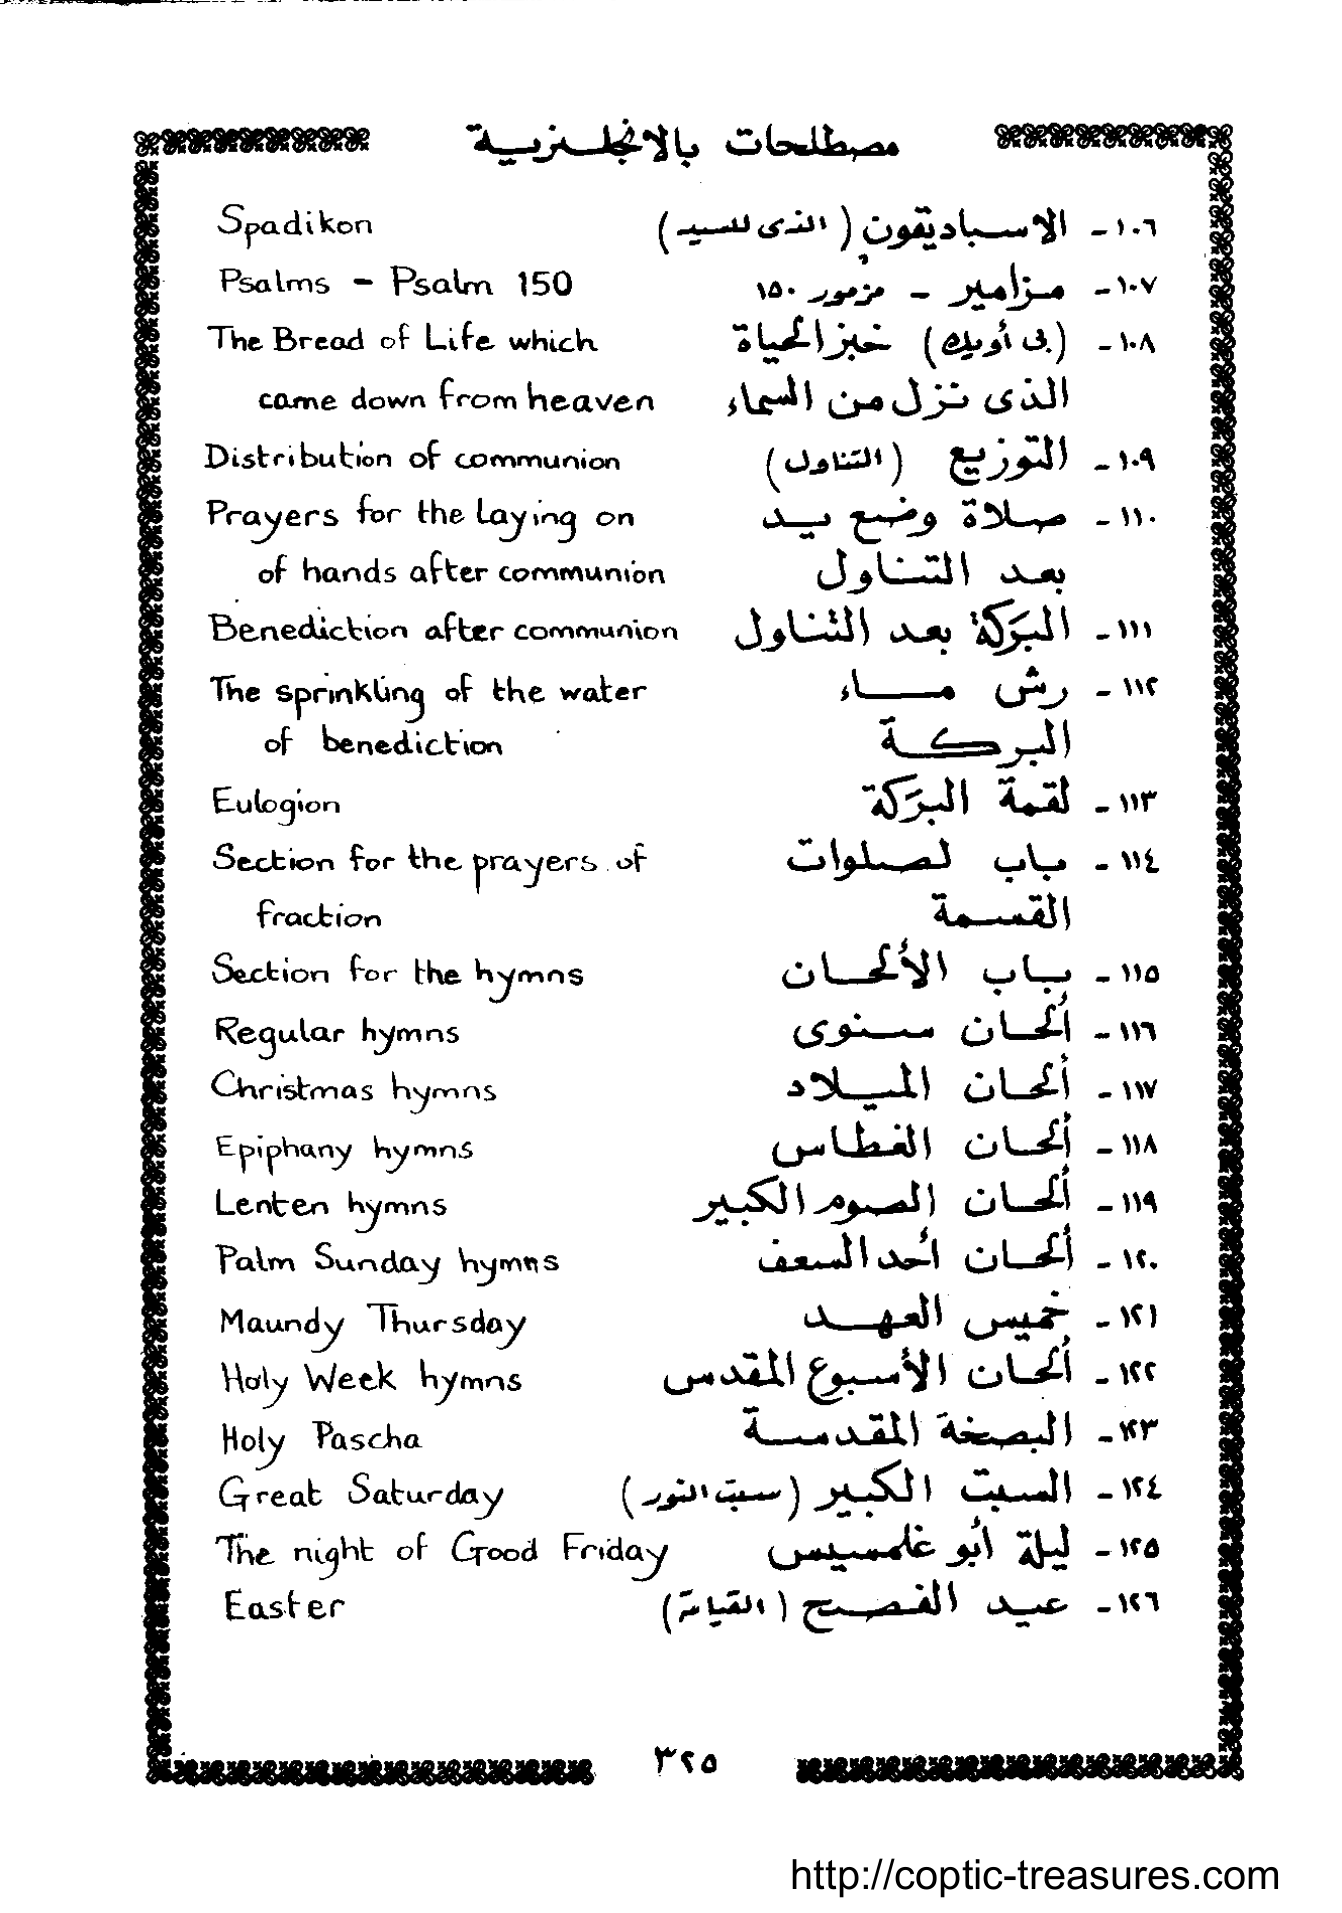 مصطلحات بالانجليزية
١٠٦- الاسباديقون (الذى للسيد) Spadikon
١٠٧- مزامير - مزمور ١٥٠ Psalms - Psalm 150
١٠٨- (بى أويك) خبز الحياة The Bread of Life which
الذى نزل من السماء came down from heaven
١٠٩- التوزيع (التناول) Distribution of communion
١١٠- صلاة وضع يد Prayers for the laying on
بعد التناول of hands after communion
١١١- البَركة بعد التناول Benediction after communion
١١٢- رش ماء The sprinkling of the water
البركة of benediction
١١٣- لقمة البَركة Eulogion
١١٤- باب لصلوات Section for the prayers of
القسمة fraction
١١٥- باب الألحان Section for the hymns
١١٦- ألحان سنوى Regular hymns
١١٧- ألحان الميلاد Christmas hymns
١١٨- ألحان الغطاس Epiphany hymns
١١٩- ألحان الصوم الكبير Lenten hymns
١٢٠- ألحان أحد السعف Palm Sunday hymns
١٢١- خميس العهد Maundy Thursday
١٢٢- ألحان الأسبوع المقدس Holy Week hymns
١٢٣- البصخة المقدسة Holy Pascha
١٢٤- السبت الكبير (سبت النور) Great Saturday
١٢٥- ليلة أبو غلمسيس The night of Good Friday
١٢٦- عيد الفصح (القيامة) Easter
٣٢٥
http://coptic-treasures.com